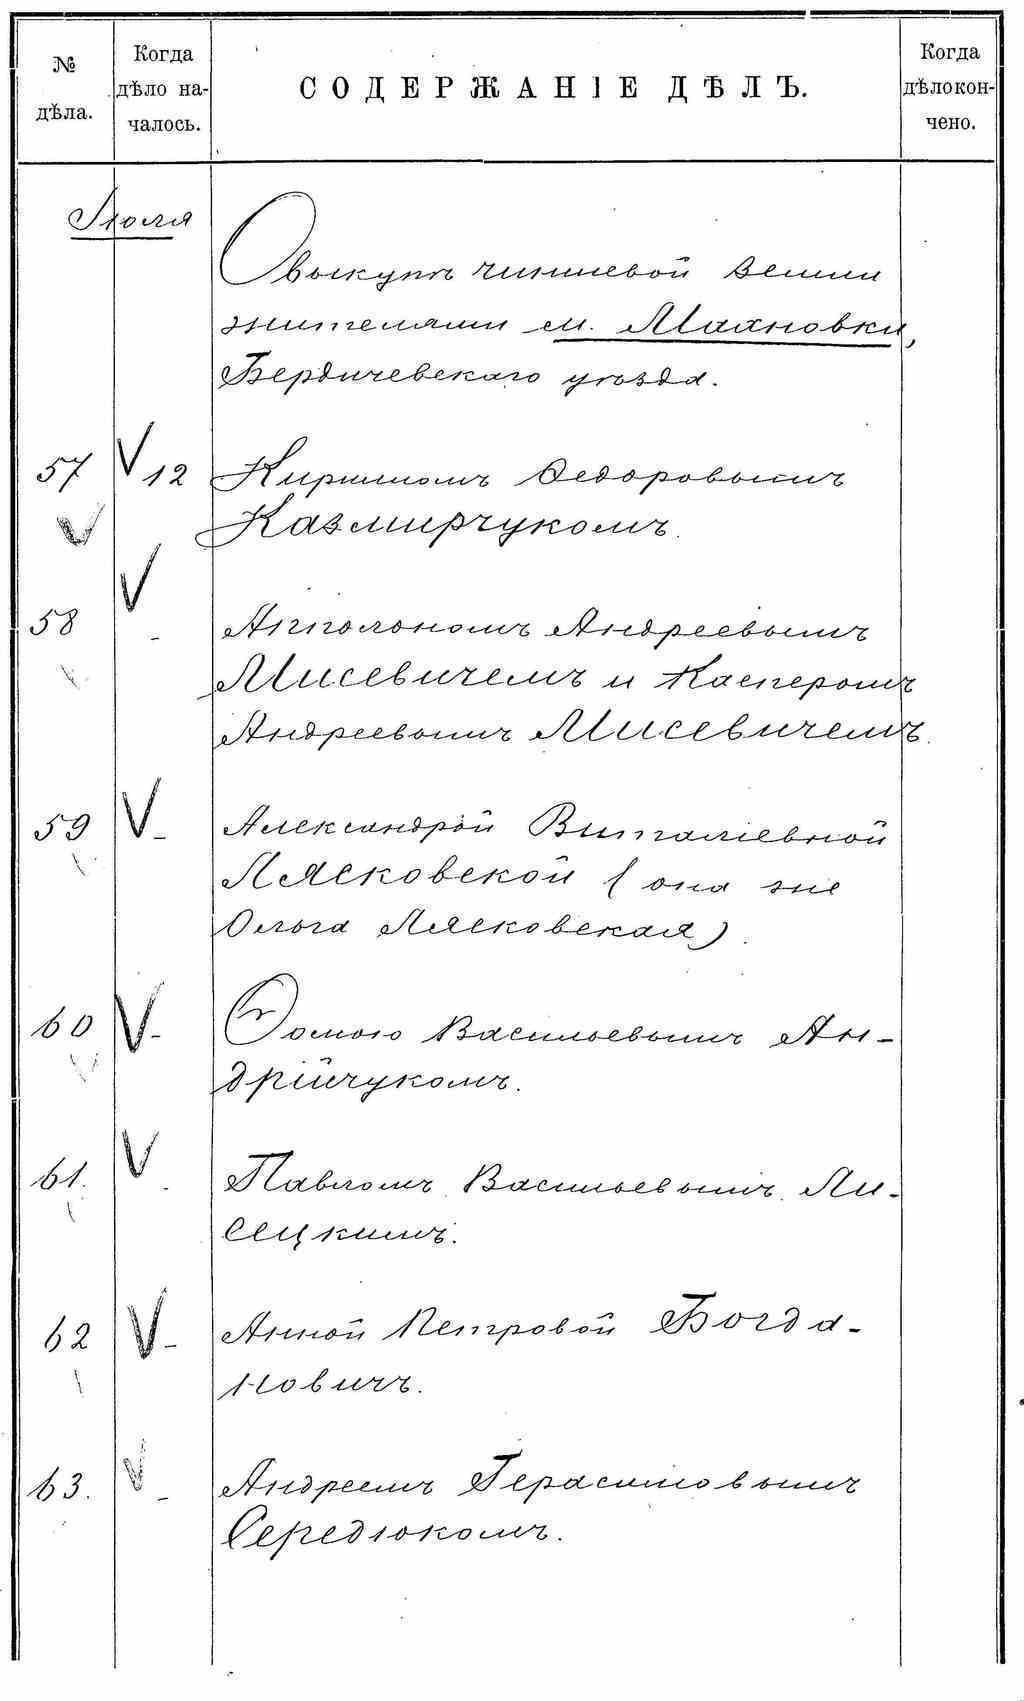 № дѣла.
Когда дѣло на- чалось.
СОДЕРЖАНІЕ ДѢЛЪ.
Когда дѣло кон- чено.
Іюля
О выкупѣ чиншевой земли
жителями м. Махновки,
Бердичевскаго уѣзда.
57 12 Кириломъ Федоровымъ
Казмирчукомъ.
58 - Апполономъ Андреевымъ
Мисевичемъ и Касперомъ
Андреевымъ Мисевичемъ.
59 - Александрой Виталіевной
Лясковской (она же
Ольга Лясковская).
60 - Ѳомою Васильевымъ Ан-
дрійчукомъ.
61. - Павломъ Васильевымъ Ли-
сецкимъ.
62 - Анной Петровой Богда-
новичъ.
63. - Андреемъ Герасимовымъ
Середюкомъ.